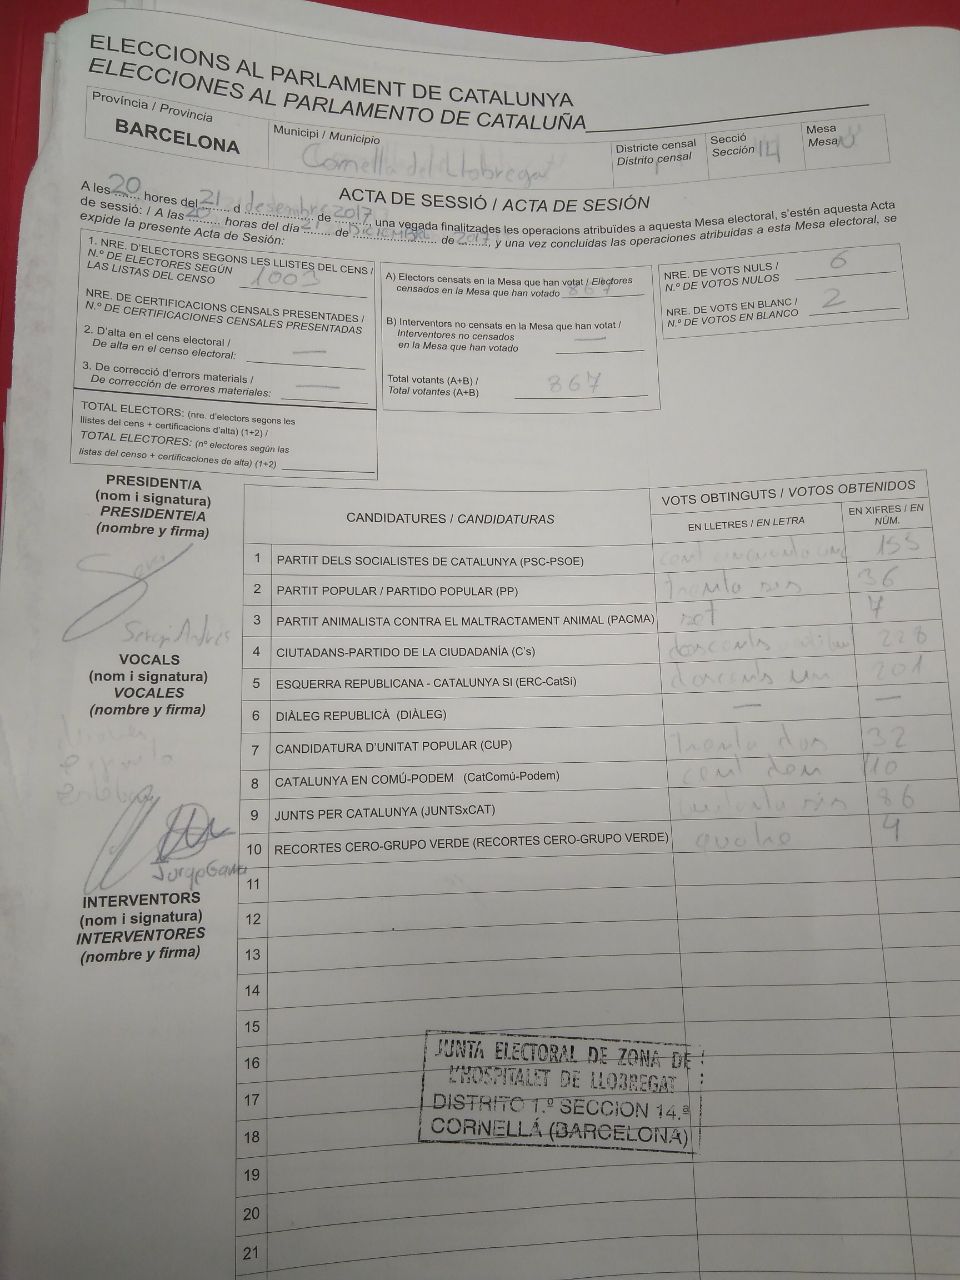 ELECCIONS AL PARLAMENT DE CATALUNYA
ELECCIONES AL PARLAMENTO DE CATALUÑA
Província / Provincia
BARCELONA
Municipi / Municipio
Cornellà del Llobregat
Districte censal
Distrito censal
1
Secció
Sección
14
Mesa
Mesa
U
ACTA DE SESSIÓ / ACTA DE SESIÓN
A les 20 hores del 21 d desembre de 2017, una vegada finalitzades les operacions atribuïdes a aquesta Mesa electoral, s'estén aquesta Acta
de sessió: / A las 20 horas del día 21 de DICIEMBRE de 2017, y una vez concluidas las operaciones atribuidas a esta Mesa electoral, se
expide la presente Acta de Sesión:
1. NRE. D'ELECTORS SEGONS LES LLISTES DEL CENS /
N.º DE ELECTORES SEGÚN
LAS LISTAS DEL CENSO
1003
NRE. DE CERTIFICACIONS CENSALS PRESENTADES /
N.º DE CERTIFICACIONES CENSALES PRESENTADAS
2. D'alta en el cens electoral /
De alta en el censo electoral: —
3. De correcció d'errors materials /
De corrección de errores materiales: —
TOTAL ELECTORS: (nre. d'electors segons les
llistes del cens + certificacions d'alta) (1+2) /
TOTAL ELECTORES: (nº electores según las
listas del censo + certificaciones de alta) (1+2)
A) Electors censats en la Mesa que han votat / Electores
censados en la Mesa que han votado 867
B) Interventors no censats en la Mesa que han votat /
Interventores no censados
en la Mesa que han votado —
Total votants (A+B) /
Total votantes (A+B) 867
NRE. DE VOTS NULS /
N.º DE VOTOS NULOS 6
NRE. DE VOTS EN BLANC /
N.º DE VOTOS EN BLANCO 2
PRESIDENT/A
(nom i signatura)
PRESIDENTE/A
(nombre y firma)
Sergi Andres
VOCALS
(nom i signatura)
VOCALES
(nombre y firma)
Jorge
INTERVENTORS
(nom i signatura)
INTERVENTORES
(nombre y firma)
CANDIDATURES / CANDIDATURAS
VOTS OBTINGUTS / VOTOS OBTENIDOS
EN LLETRES / EN LETRA
EN XIFRES / EN
NÚM.
1 PARTIT DELS SOCIALISTES DE CATALUNYA (PSC-PSOE) cent cinquanta 155
2 PARTIT POPULAR / PARTIDO POPULAR (PP) trenta sis 36
3 PARTIT ANIMALISTA CONTRA EL MALTRACTAMENT ANIMAL (PACMA) set 7
4 CIUTADANS-PARTIDO DE LA CIUDADANÍA (C's) doscents 228
5 ESQUERRA REPUBLICANA - CATALUNYA SI (ERC-CatSí) doscents un 201
6 DIÀLEG REPUBLICÀ (DIÀLEG) — —
7 CANDIDATURA D'UNITAT POPULAR (CUP) trenta dos 32
8 CATALUNYA EN COMÚ-PODEM (CatComú-Podem) cent deu 110
9 JUNTS PER CATALUNYA (JUNTSxCAT) sis 86
10 RECORTES CERO-GRUPO VERDE (RECORTES CERO-GRUPO VERDE) quatre 4
11
12
13
14
15
16
17
18
19
20
21
JUNTA ELECTORAL DE ZONA DE
L'HOSPITALET DE LLOBREGAT
DISTRITO 1.º SECCION 14.ª
CORNELLÁ (BARCELONA)